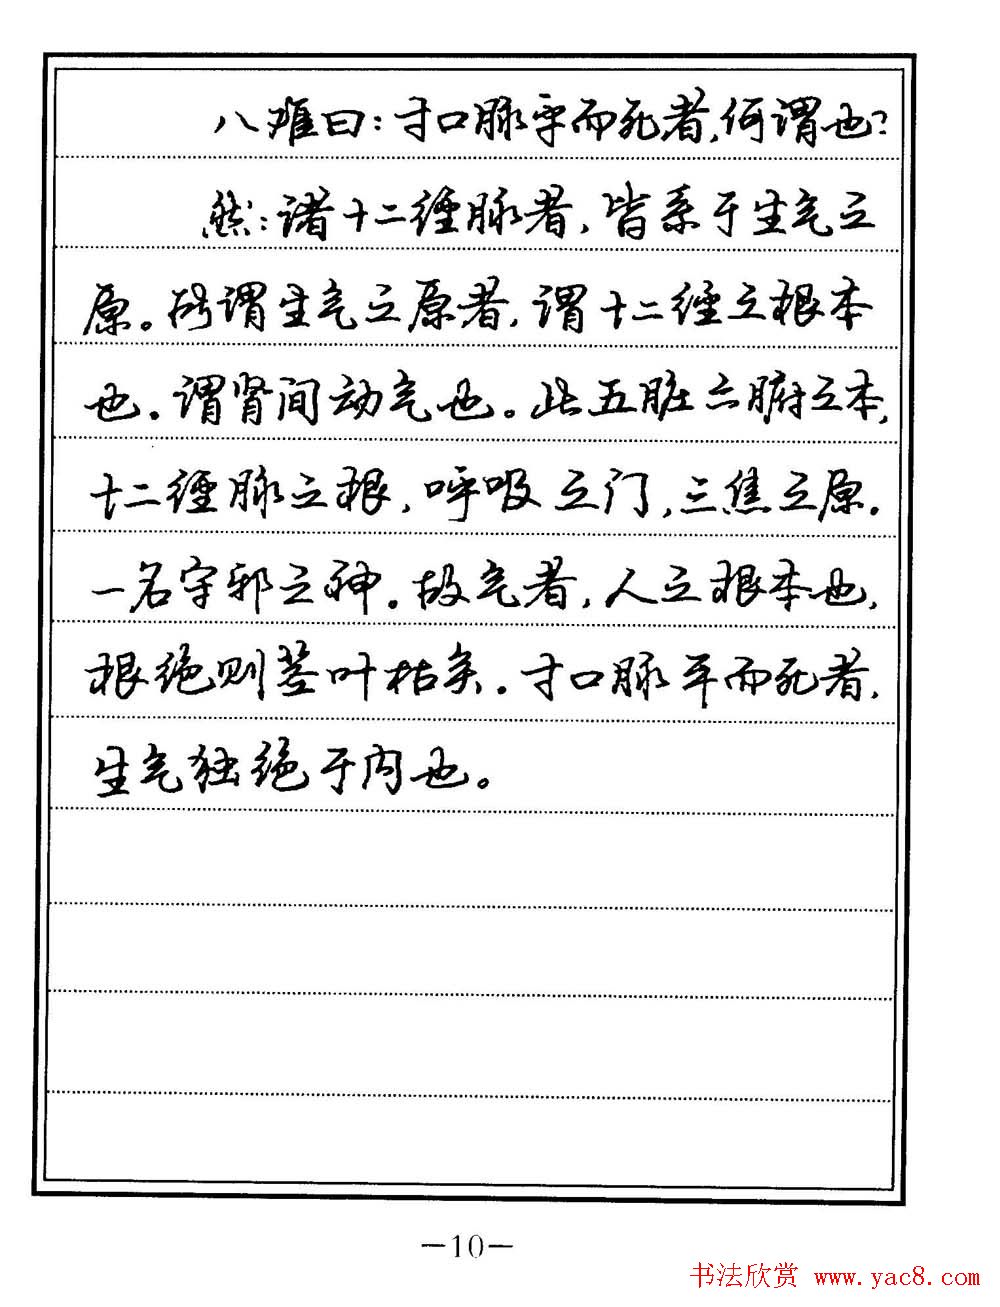 八难曰:寸口脉平而死者,何谓也?
然:诸十二经脉者,皆系于生气之
原。所谓生气之原者,谓十二经之根本
也。谓肾间动气也。此五脏六腑之本,
十二经脉之根,呼吸之门,三焦之原。
一名守邪之神。故气者,人之根本也,
根绝则茎叶枯矣。寸口脉平而死者,
生气独绝于内也。
—10—
书法欣赏 www.yac8.com